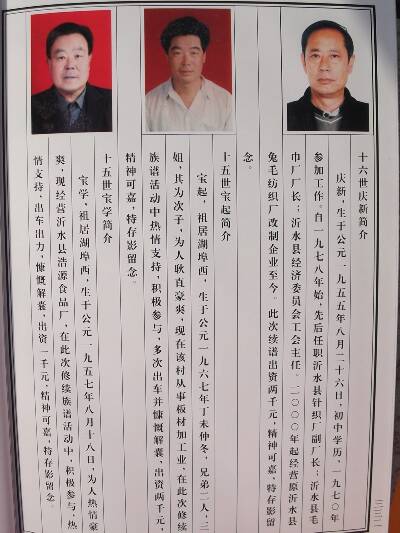 十六世庆新简介
庆新，生于公元一九五五年八月二十六日，初中学历，一九七〇年
参加工作。自一九七八年始，先后任职沂水县针织厂副厂长；沂水县毛
巾厂厂长；沂水县经济委员会工会主任。二〇〇〇年起经营原沂水县
兔毛纺织厂改制企业至今。此次续谱出资两千元，精神可嘉，特存影留
念。
十五世宝起简介
宝起，祖居湖埠西，生于公元一九六七年丁未仲冬，兄弟二人，三
姐，其为次子，为人耿直豪爽，现在该村从事板材加工业，在此次修续
族谱活动中热情支持，积极参与，多次出车并慷慨解囊，出资两千元，
精神可嘉，特存影留念。
十五世宝学简介
宝学，祖居湖埠西，生于公元一九五七年八月十八日，为人热情豪
爽，现经营沂水县浩源食品厂，在此次修续族谱活动中，积极参与，热
情支持，出车出力，慷慨解囊，出资一千元，精神可嘉，特存影留念。
三三一